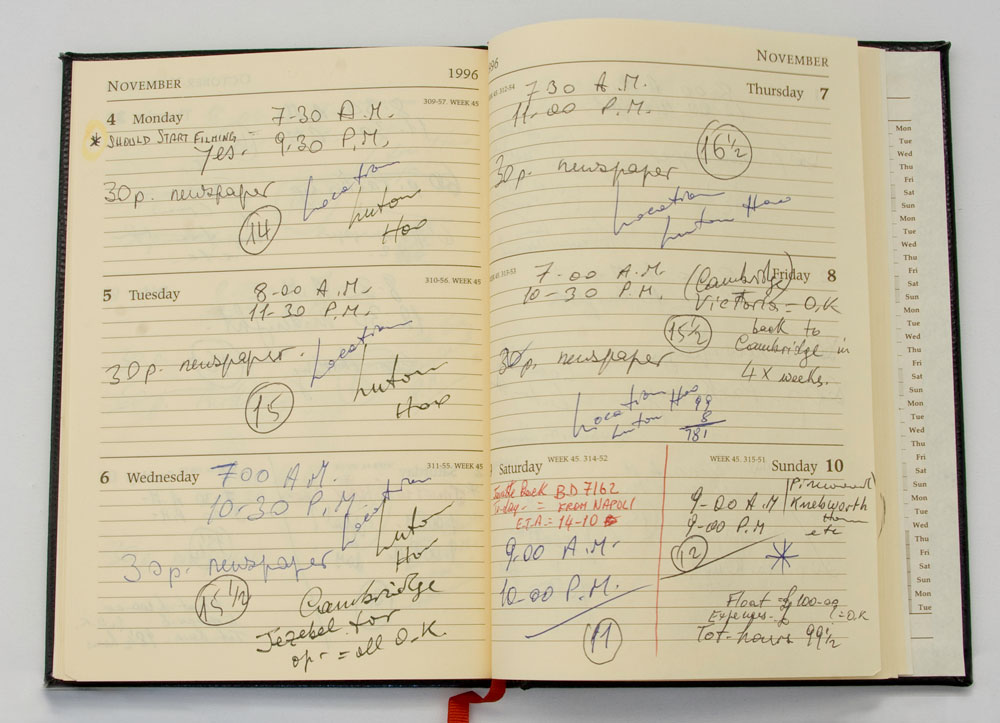 NOVEMBER 1996
309-57. WEEK 45
4 Monday 7-30 A.M.
* SHOULD START FILMING = 9.30 P.M.
Yes.
30p. newspaper Location
14 Luton
Hoo
310-56. WEEK 45
5 Tuesday 8-00 A.M.
11-30 P.M.
30p. newspaper. Location
15 Luton
Hoo
311-55. WEEK 45
6 Wednesday 7.00 A.M.
10-30 P.M. Location
Luton
30p. newspaper Hoo
15 1/2 Cambridge
Jezebel for
op- = all O.K.
96 NOVEMBER
45. 312-54
7 30 A.M. Thursday 7
11-00 P.M.
16 1/2
30p. newspaper
Location
Luton Hoo
45. 313-53
7-00 A.M. (Cambridge) Friday 8
10-30 P.M. Victoria = O.K
15 1/2 back to
Cambridge in
30p. newspaper 4 X weeks.
Location
Luton Hoo 99
8
781
Saturday WEEK 45. 314-52
Back BD 7162
= FROM NAPOLI
E.T.A. = 14-10
9.00 A.M.
10-00 P.M.
11
WEEK 45. 315-51 Sunday 10
Pinewood
9-00 A.M Knebworth
9-00 P.M etc
12
Float = £100-00
Expenses - £ = O.K
Tot- hours 99 1/2
OCTOBER
Mon
Tue
Wed
Thu
Fri
Sat
Sun
Mon
Tue
Wed
Thu
Fri
Sat
Sun
Mon
Tue
Wed
Thu
Fri
Sat
Sun
Mon
Tue
Wed
Thu
Fri
Sat
Sun
Mon
Tue
Wed
Thu
Fri
Sat
Sun
Mon
Tue